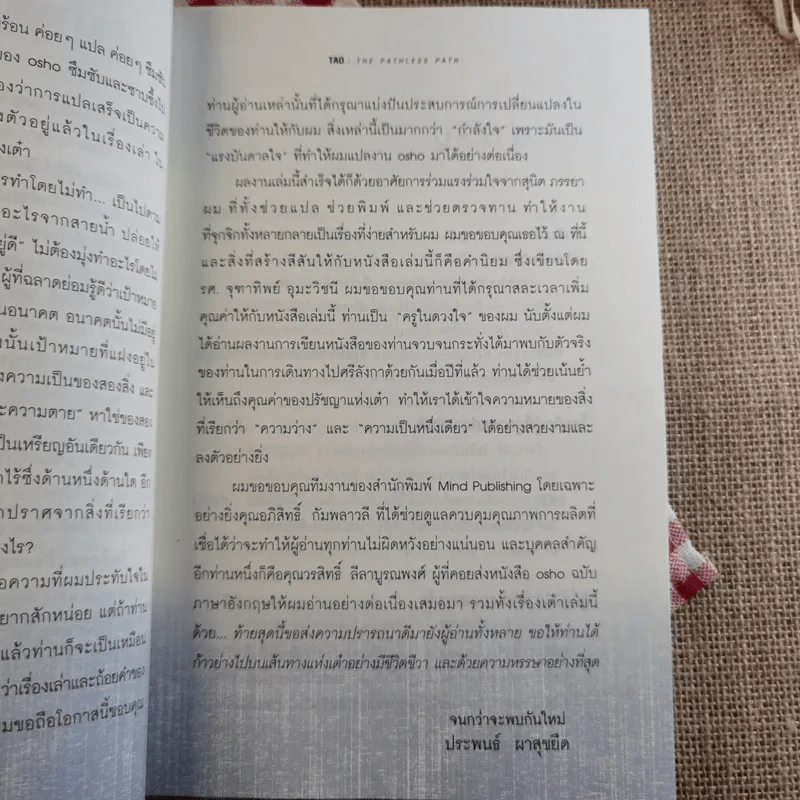 ร้อน ค่อยๆ แปล ค่อยๆ ซึมซับ
ของ osho ซึมซับและซาบซึ้งไป
องว่าการแปลเสร็จเป็นความ
งตัวอยู่แล้วในเรื่องเล่า ไป
งเต๋า
รทำโดยไม่ทำ... เป็นไปตาม
อะไรจากสายน้ำ ปล่อยให้
ยู่ดี” ไม่ต้องมุ่งทำอะไรโดยไม่
ผู้ที่ฉลาดย่อมรู้ดีว่าเป้าหมาย
นอนาคต อนาคตนั้นไม่มีอยู่
งนั้นเป้าหมายที่แฝงอยู่ใน
งความเป็นของสองสิ่ง และ
ะความตาย” หาใช่ของสอง
ป็นเหรียญอันเดียวกัน เพียง
าไร้ซึ่งด้านหนึ่งด้านใด อีก
าปราศจากสิ่งที่เรียกว่า
งไร?
อความที่ผมประทับใจใน
ยากสักหน่อย แต่ถ้าท่าน
แล้วท่านก็จะเป็นเหมือน
ว่าเรื่องเล่าและถ้อยคำของ
มขอถือโอกาสนี้ขอบคุณ
TAO : THE PATHLESS PATH
ท่านผู้อ่านเหล่านั้นที่ได้กรุณาแบ่งปันประสบการณ์การเปลี่ยนแปลงใน
ชีวิตของท่านให้กับผม สิ่งเหล่านี้เป็นมากกว่า “กำลังใจ” เพราะมันเป็น
“แรงบันดาลใจ” ที่ทำให้ผมแปลงาน osho มาได้อย่างต่อเนื่อง
ผลงานเล่มนี้สำเร็จได้ก็ด้วยอาศัยการร่วมแรงร่วมใจจากสุนิต ภรรยา
ผม ที่ทั้งช่วยแปล ช่วยพิมพ์ และช่วยตรวจทาน ทำให้งาน
ที่จุกจิกทั้งหลายกลายเป็นเรื่องที่ง่ายสำหรับผม ผมขอขอบคุณเธอไว้ ณ ที่นี้
และสิ่งที่สร้างสีสันให้กับหนังสือเล่มนี้ก็คือคำนิยม ซึ่งเขียนโดย
รศ. จุฑาทิพย์ อุมะวิชนี ผมขอขอบคุณท่านที่ได้กรุณาสละเวลาเพิ่ม
คุณค่าให้กับหนังสือเล่มนี้ ท่านเป็น “ครูในดวงใจ” ของผม นับตั้งแต่ผม
ได้อ่านผลงานการเขียนหนังสือของท่านจวบจนกระทั่งได้มาพบกับตัวจริง
ของท่านในการเดินทางไปศรีลังกาด้วยกันเมื่อปีที่แล้ว ท่านได้ช่วยเน้นย้ำ
ให้เห็นถึงคุณค่าของปรัชญาแห่งเต๋า ทำให้เราได้เข้าใจความหมายของสิ่ง
ที่เรียกว่า “ความว่าง” และ “ความเป็นหนึ่งเดียว” ได้อย่างสวยงามและ
ลงตัวอย่างยิ่ง
ผมขอขอบคุณทีมงานของสำนักพิมพ์ Mind Publishing โดยเฉพาะ
อย่างยิ่งคุณอภิสิทธิ์ กัมพลาวลี ที่ได้ช่วยดูแลควบคุมคุณภาพการผลิตที่
เชื่อได้ว่าจะทำให้ผู้อ่านทุกท่านไม่ผิดหวังอย่างแน่นอน และบุคคลสำคัญ
อีกท่านหนึ่งก็คือคุณวรสิทธิ์ ลีลาบูรณพงศ์ ผู้ที่คอยส่งหนังสือ osho ฉบับ
ภาษาอังกฤษให้ผมอ่านอย่างต่อเนื่องเสมอมา รวมทั้งเรื่องเต๋าเล่มนี้
ด้วย... ท้ายสุดนี้ขอส่งความปรารถนาดีมายังผู้อ่านทั้งหลาย ขอให้ท่านได้
ก้าวย่างไปบนเส้นทางแห่งเต๋าอย่างมีชีวิตชีวา และด้วยความหรรษาอย่างที่สุด
จนกว่าจะพบกันใหม่
ประพนธ์ ผาสุขยืด